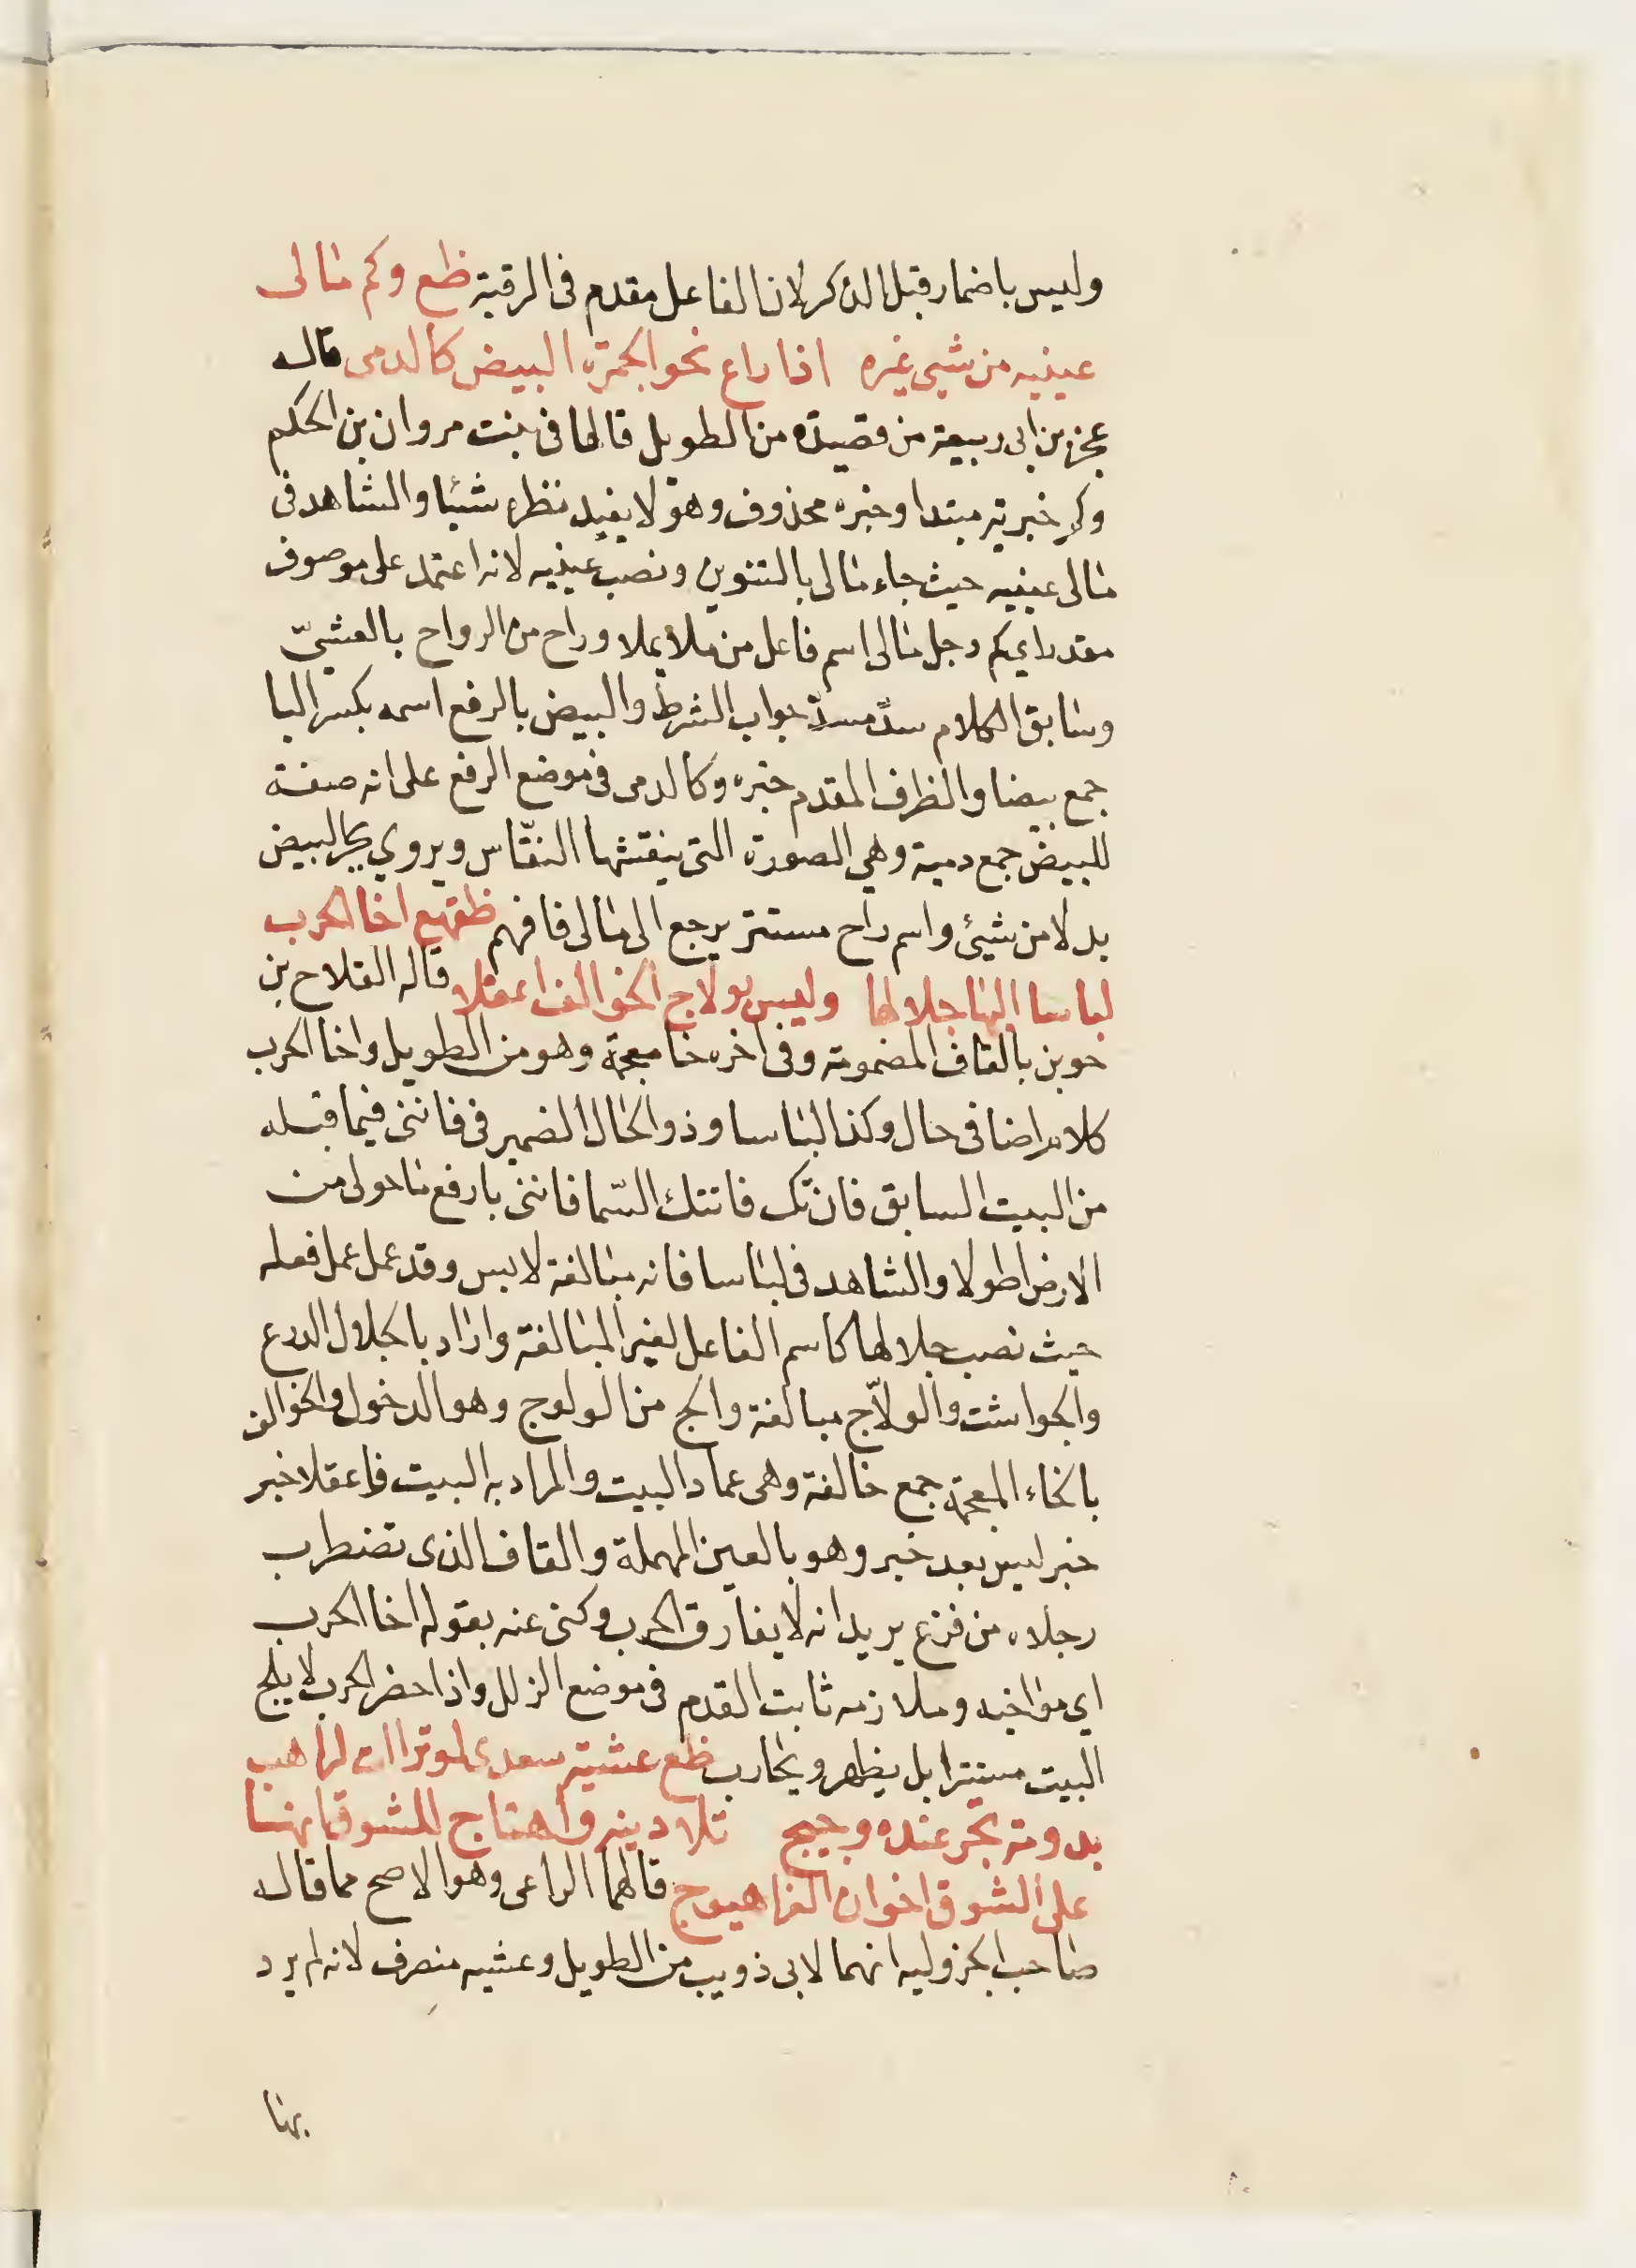 وليس باضمار قبل الذكر لان الفاعل مقدم فى الرقبة ظع وكم مالى
عينيه من شيى غيره اذا راع نحو الجمرة البيض كالدمى قاله
عمر بن ابى ربيعة من قصيدة من الطويل قالها فى بنت مروان بن الحكم
وكم خبرية مبتدا وخبره محذوف وهو لا يفيد نظره شيئا والشاهد فى
مالى عينيه حيث جاء مالى بالتنوين ونصب عينيه لانه اعتمد على موصوف
مقدر اي كم رجل مالى اسم فاعل من ملا يملا وراح من الرواح بالعشيّ
وسابق الكلام سدّ مسدّ جواب الشرط والبيض بالرفع اسمه بكسر البا
جمع بيضا والظرف المقدم خبره وكالدمى فى موضع الرفع على انه صفة
للبيض جمع دمية وهي الصورة التى ينقشها النقّاس ويروي بجر البيض
بدلا من شيئ واسم راح مستتر يرجع الى مالى فافهم ظقهع اخا الحرب
لباسا اليها جلالها وليس بولاج الخوالف اعقلا قاله القلاح بن
حوبن بالقاف المضمومة وفى اخره خا معجمة وهو من الطويل واخا الحرب
كلام اضافى حال وكذا لباسا وذو الحال الضمير فى فاننى فيما قبله
من البيت السابق فان تك فاتتك السّما فاننى بارفع ما حولى من
الارض اطولا والشاهد فى لباسا فانه مبالغة لابس وقد عمل عمل فعله
حيث نصب جلالها كاسم الفاعل لغير المبالغة واراد بالجلال الدرع
والجواشت والولاّج مبالغة والج من الولوج وهو الدخول والخوالف
بالخاء المعجمة جمع خالفة وهى عماد البيت والمراد به البيت فاعقلا خبر
خبر ليس بعد خبر وهو بالعين المهملة والقاف الذى تضطرب
رجلاه من فزع يريد انه لا يفارق الحرب وكنى عنه بقوله اخا الحرب
اي مؤاخيه وملازمه ثابت القدم فى موضع الزلل واذا حضر الحرب لا يلج
البيت مستترا بل يظهر ويحارب ظع عشية سعدى لو تراات لراهب
بدومة تجر عنده وحجيج تلا دينه واهتاج للشوق انها
على الشوق اخوان العزا هيوج قالهما الراعى وهو الاصح مما قاله
صاحب الجزوليه انهما لابى ذويب من الطويل وعشيه منصرف لانه لم يرد
بها